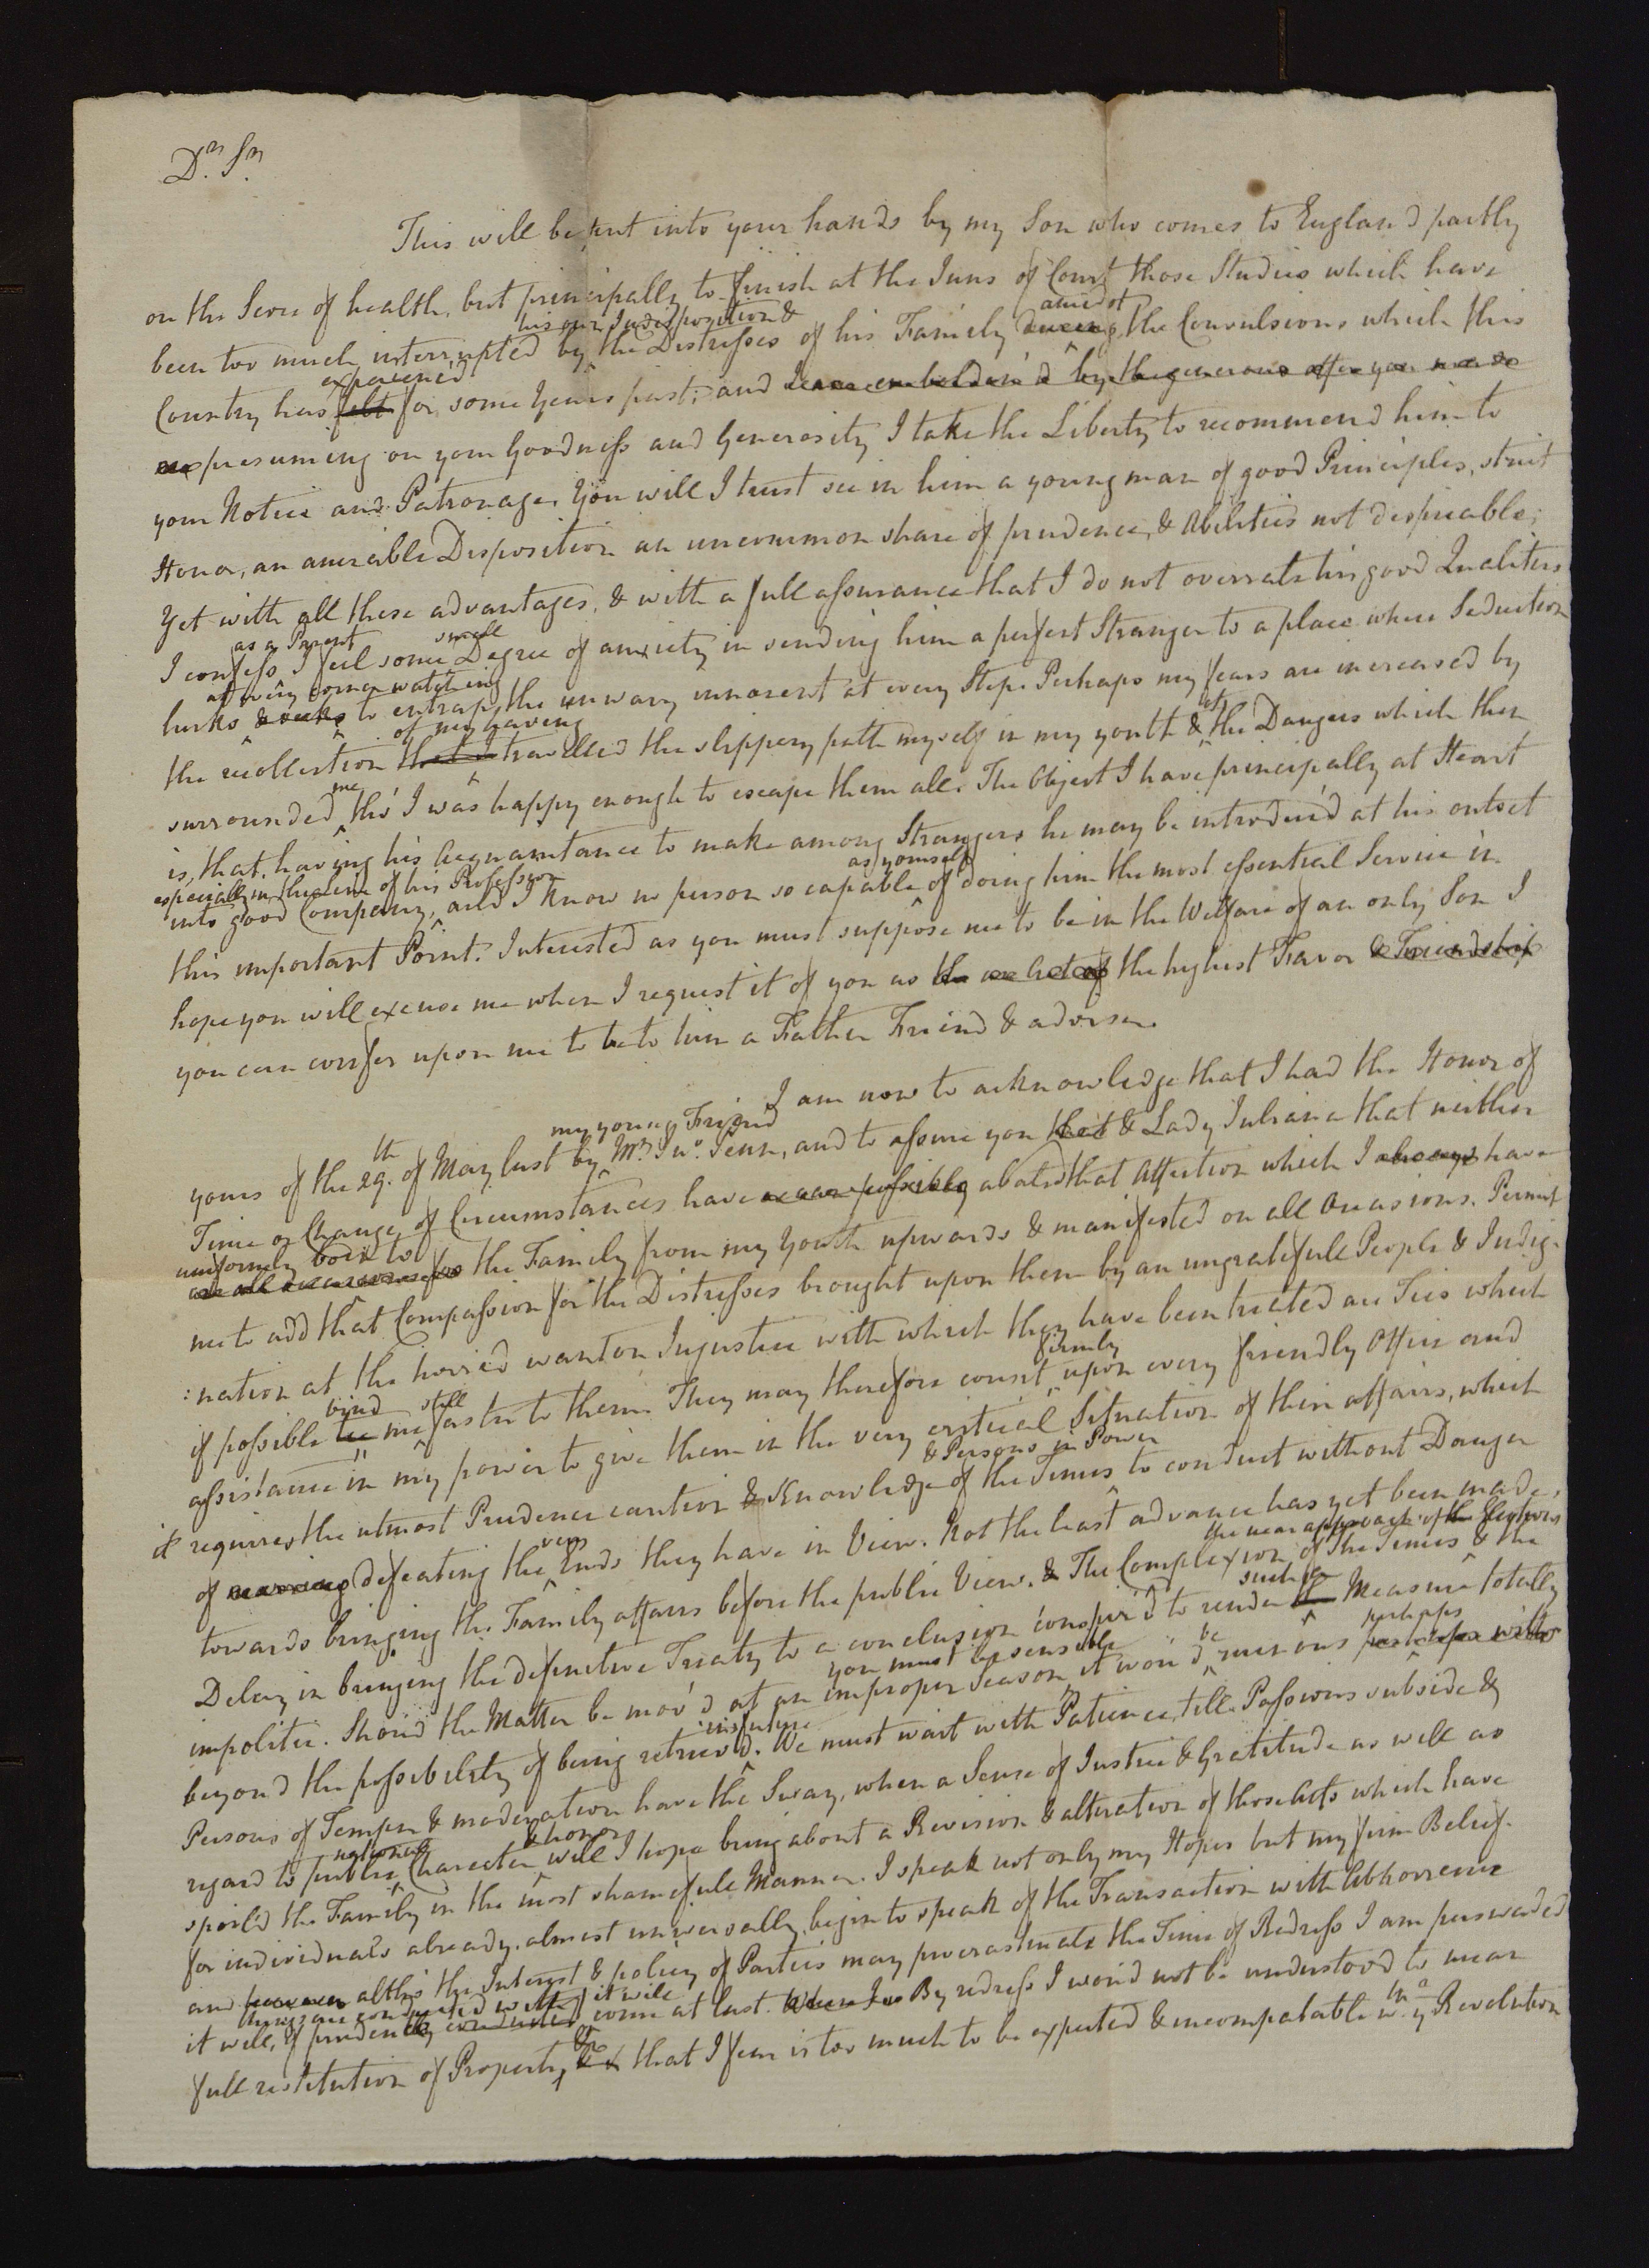 Dr. Sr.
This will be put into your hands by my Son who comes to England partly
on the Score of health, but principally to finish at the Inns of Court those Studies which have
his own Indisposition & amidst
been too much interrupted by the Distresses of his Family during the Convulsions which this
experienc'd
Country has felt for some Years past; and I am embolden'd by the generous offer you made
me presuming on your Goodness and Generosity I take the Liberty to recommend him to
your Notice and Patronage. You will I trust see in him a young man of good Principles, strict
Honor, an amiable Disposition an uncommon share of prudence, & Abilities not despicable;
Yet with all these advantages, & with a full assurance that I do not overrate his good Qualities
as a Parent small
I confess I feel some Degree of anxiety in sending him a perfect Stranger to a place where Seduction
at every corner watching
lurks & seeks to entrap the unwary innocent at every Step. Perhaps my fears are increased by
of my having of
the recollection that I travelled the slippery path myself in my youth & the Dangers which then
me
surrounded tho' I was happy enough to escape them all. The Object I have principally at Heart
is, that, having his Acquaintance to make among Strangers he may be introduc'd at his outset
especially in the line of his Profession as yourself
into good Company, and I know no person so capable of doing him the most essential Service in
this important Point. Interested as you must suppose me to be in the Welfare of an only Son I
hope you will excuse me when I request it of you as the an Act of the highest Favor & Friendship
you can confer upon me to be to him a Father Friend & adviser.
I am now to acknowledge that I had the Honor of
th my young Friend
yours of the 29. of May last by Mr. Jno. Penn, and to assure you that & Lady Juliana that neither
Time or Change of Circumstances have abated that Affection which I always have
uniformly bore to
on all occasions for the Family from my Youth upwards & manifested on all Occasions. Permit
me to add that Compassion for the Distresses brought upon them by an ungratefull People & Indig-
:nation at the horrid wanton Injustice with which they have been treated are Ties which
bind still firmly
if possible tie me faster to them. They may therefore count upon every friendly Office and
assistance in my power to give them in the very critical Situation of their affairs, which
& Persons in Power
it requires the utmost Prudence caution & Knowledge of the Times to conduct without Danger
very
of defeating the Ends they have in View. Not the least advance has yet been made,
the near approach of the Elections
towards bringing the Family affairs before the public View. & The Complexion of the Times & the
such a
Delay in bringing the definitive Treaty to a conclusion conspir'd to render the Measure totally
you must be sensible be perhaps
impolitic. Shou'd the Matter be mov'd at an improper Season, it wou'd ruinous perhaps
in future
beyond the possibility of being retriev'd. We must wait with Patience, till Passions subside &
Persons of Temper & moderation have the Sway, when a Sense of Justice & Gratitude as well as
national & honor
regard to public Character will I hope bring about a Revision & alteration of those Acts which have
spoil'd the Family in the most shamefull Manner. I speak not only my Hopes but my firm Belief.
for individuals already, almost universally, begin to speak of the Transaction with Abhorrence
and however altho' the Interest & policy of Parties may procrastinate the Time of Redress I am perswaded
things are conducted with it will
it will, if prudently conducted come at last. By redress I wou'd not be understood to mean a
full restitution of Property, that I fear is too much to be expected & incompatable wth. ye Revolution